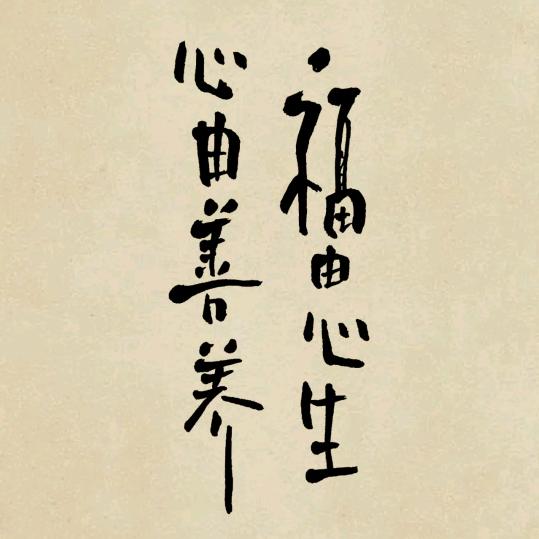 福由心生
心由善养